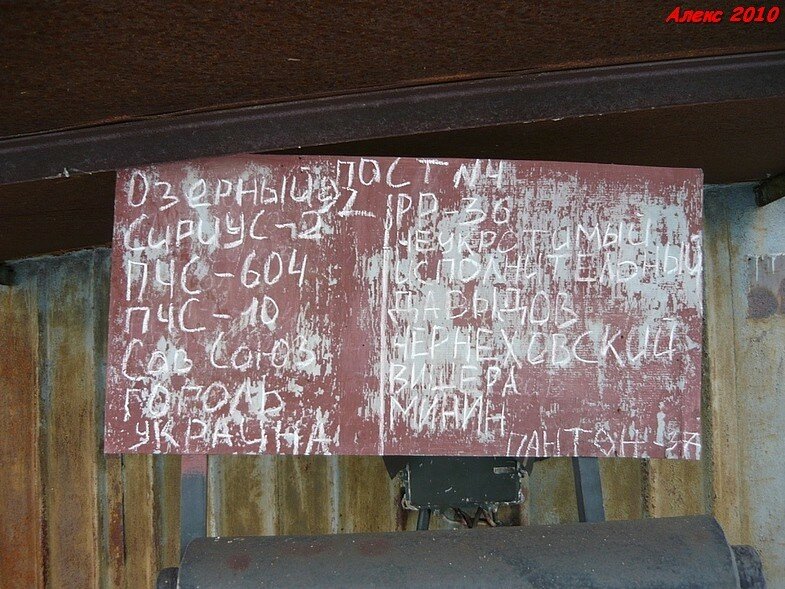 Алекс 2010
ПОСТ N4
ОЗЕРНЫЙ
СИРИУС-2
ПЧС-604
ПЧС-10
Сов Союз
ГОГОЛЬ
УКРАИНА
РР-36
НЕУКРОТИМЫЙ
ИСПОЛНИТЕЛЬНЫЙ
ДАВЫДОВ
ЧЕРНЕХОВСКИЙ
ВИШЕРА
МИНИН
ПАНТОН-37